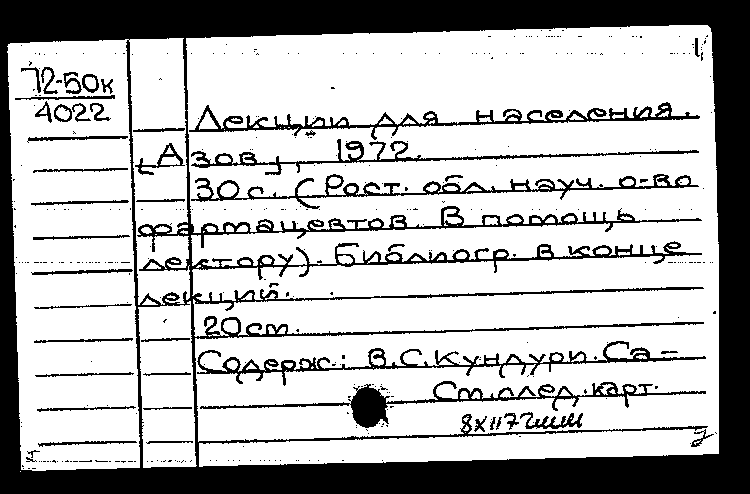 72-50к
4022
Лекции для населения.
[Азов], 1972.
30 с. (Рост. обл. науч. о-во
фармацевтов. В помощь
лектору). Библиогр. в конце
лекций.
20 см.
Содерж.: В.С.Кундури. Са-
См.след.карт.